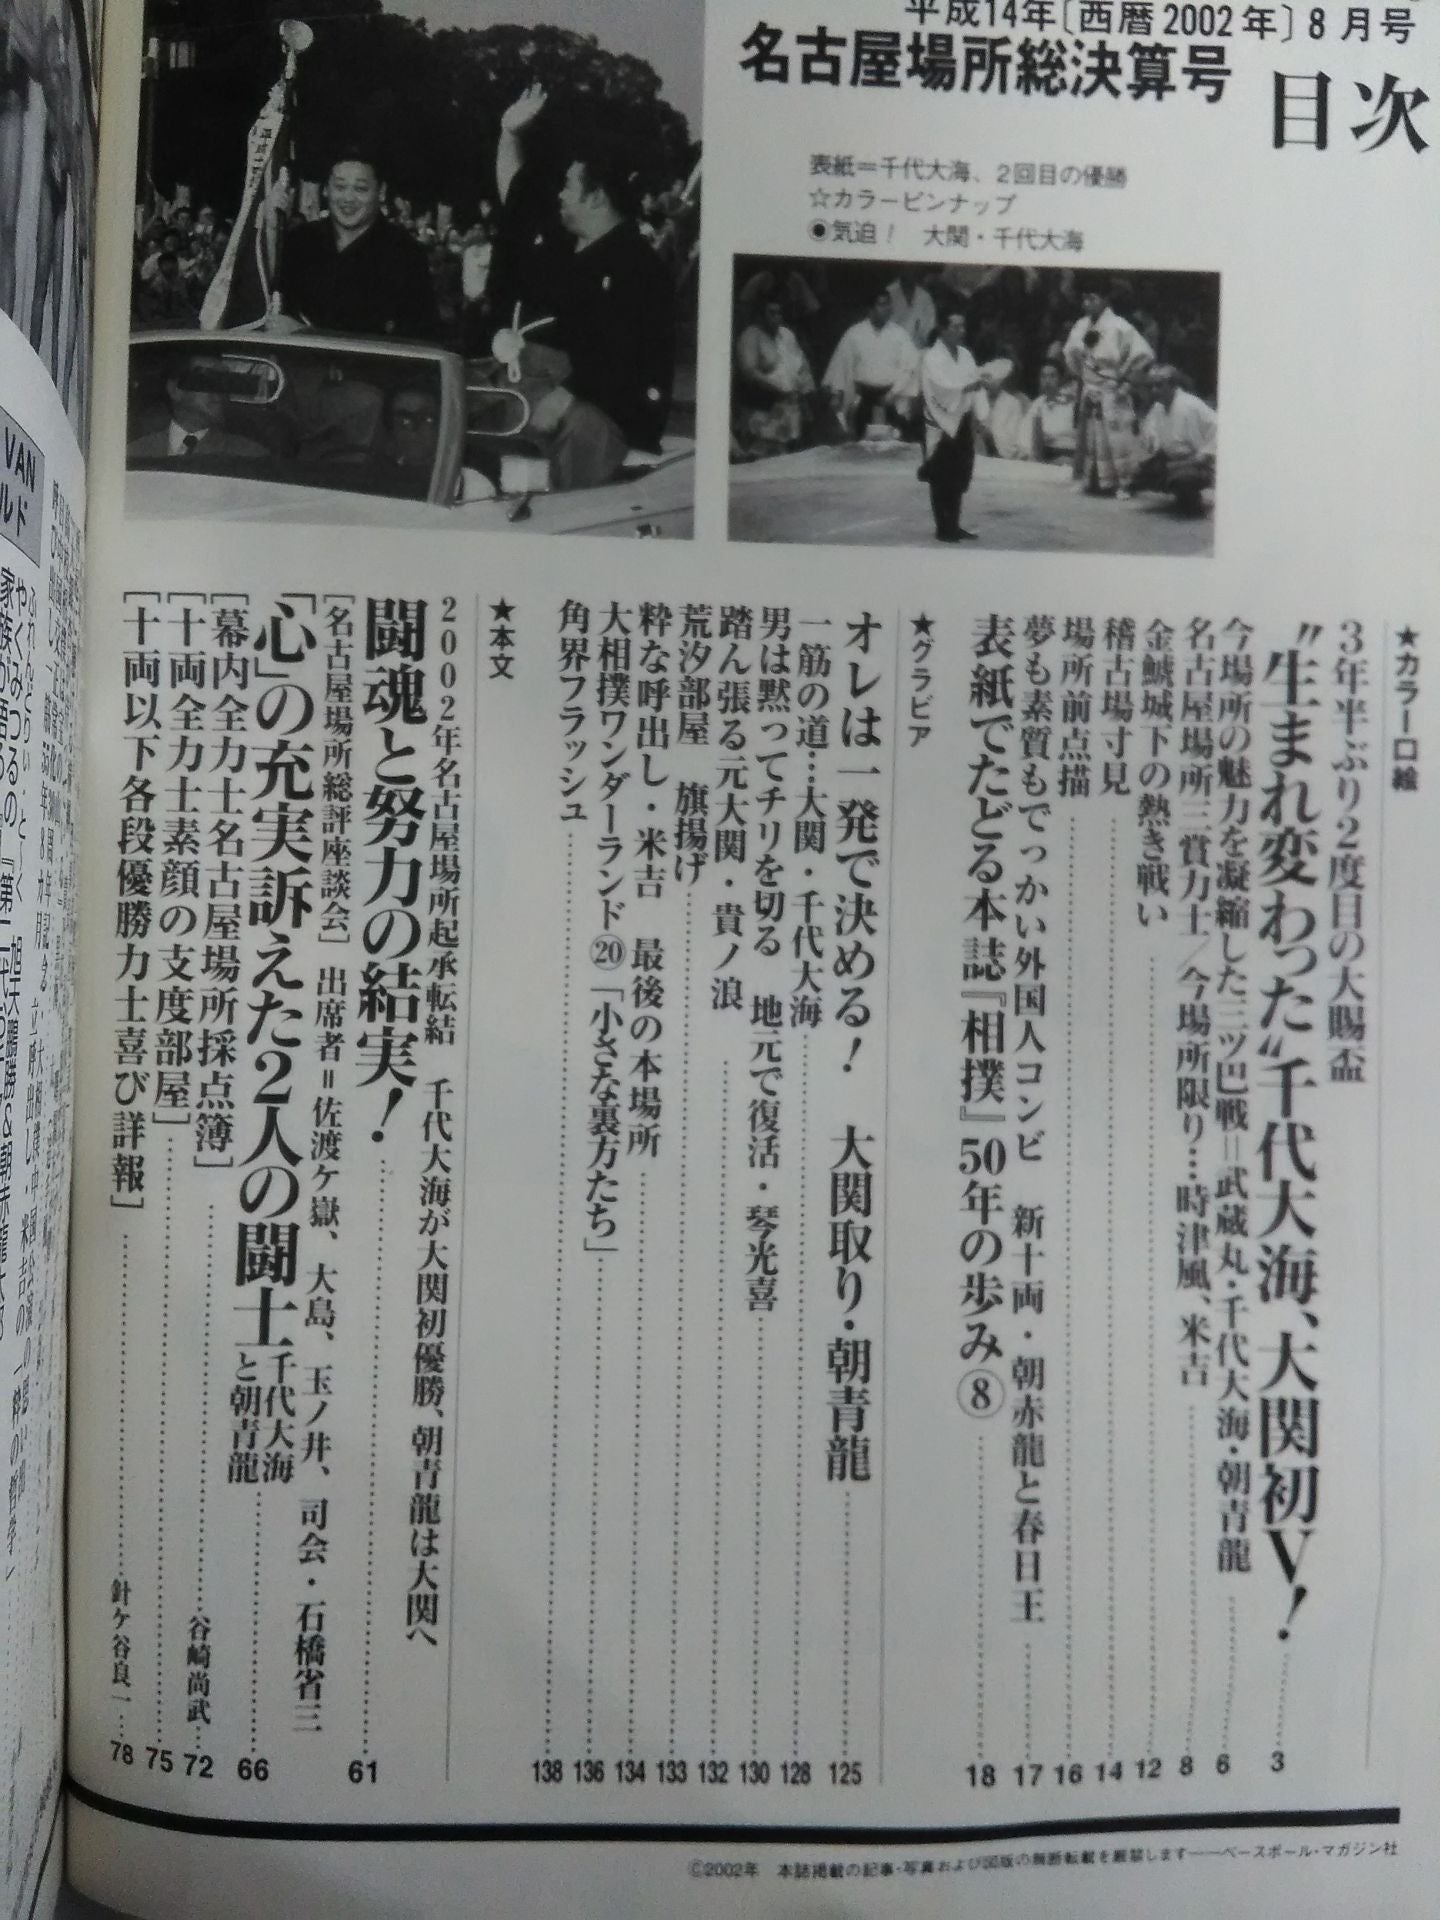 平成14年〔西暦2002年〕8月号
名古屋場所総決算号
目次
表紙＝千代大海、2回目の優勝
☆カラーピンナップ
◉気迫！　大関・千代大海
★カラー口絵
3年半ぶり2度目の大賜盃
〝生まれ変わった〟千代大海、大関初V！……3
今場所の魅力を凝縮した三ツ巴戦＝武蔵丸・千代大海・朝青龍……6
名古屋場所三賞力士／今場所限り…時津風、米吉……8
金鯱城下の熱き戦い……12
稽古場寸見……14
場所前点描……16
夢も素質もでっかい外国人コンビ　新十両・朝赤龍と春日王……17
表紙でたどる本誌『相撲』50年の歩み⑧……18
★グラビア
オレは一発で決める！　大関取り・朝青龍……125
一筋の道…大関・千代大海……128
男は黙ってチリを切る　地元で復活・琴光喜……130
踏ん張る元大関・貴ノ浪……132
荒汐部屋　旗揚げ……133
粋な呼出し・米吉　最後の本場所……134
大相撲ワンダーランド⑳「小さな裏方たち」……136
角界フラッシュ……138
★本文
2002年名古屋場所起承転結　千代大海が大関初優勝、朝青龍は大関へ
闘魂と努力の結実！……61
［名古屋場所総評座談会］出席者＝佐渡ケ嶽、大島、玉ノ井、司会・石橋省三
「心」の充実訴えた2人の闘士　千代大海と朝青龍……66
［幕内全力士名古屋場所採点簿］……谷崎尚武……72
［十両全力士素顔の支度部屋］……75
［十両以下各段優勝力士喜び詳報］……針ケ谷良一……78
©2002年　本誌掲載の記事・写真および図版の無断転載を厳禁します──ベースボール・マガジン社
VAN
ルド